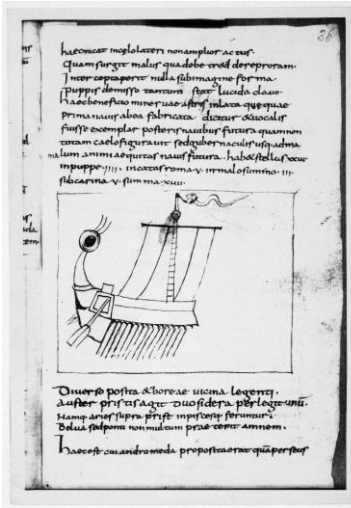 36
haecmicat non amplior actus.
Quam surgit malus qua debe reddere proram.
Inter cepta perit nulla subimagine forma
puppis demisso tantum stat lucida clavo.
haec beneficio minervae astris inlata quequae
prima navis abea fabricata dicitur &vocalis
fuisse exemplar posteris navibus futura quamnon
totam caelo figuravit sed gubernaculis usq; adma
lum animi aequitas navis futura. hab& stellas xxvi
inpuppe .iiii. in catasroma .v. in malo summo .iii.
subcarina .v. summa .xvii.
Diverso posita &boreae vicina legenti.
Auster pristis agit duo sidera perlegit unu
Namq; aries supra prist inpiscesq; feruntur
Belua sed ponti non multum praeterit amnem.
haec est cui andromeda proposita erat quā perseus